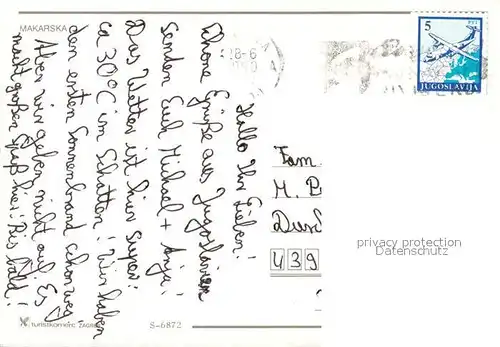 MAKARSKA
Hallo Ihr Lieben!
Schöne Grüße aus Jugoslawien
senden Euch Michael + Anja!
Das Wetter ist hier super:
ca 30°C im Schatten! Wir haben
den ersten Sonnenbrand schon weg.
Aber wir geben nicht auf! Es
macht großen Spaß hier! Bis bald!
turistkomerc ZAGREB
S-6872
28-6
5
JUGOSLAVIJA
Fam.
M.
439
privacy protection
Datenschutz